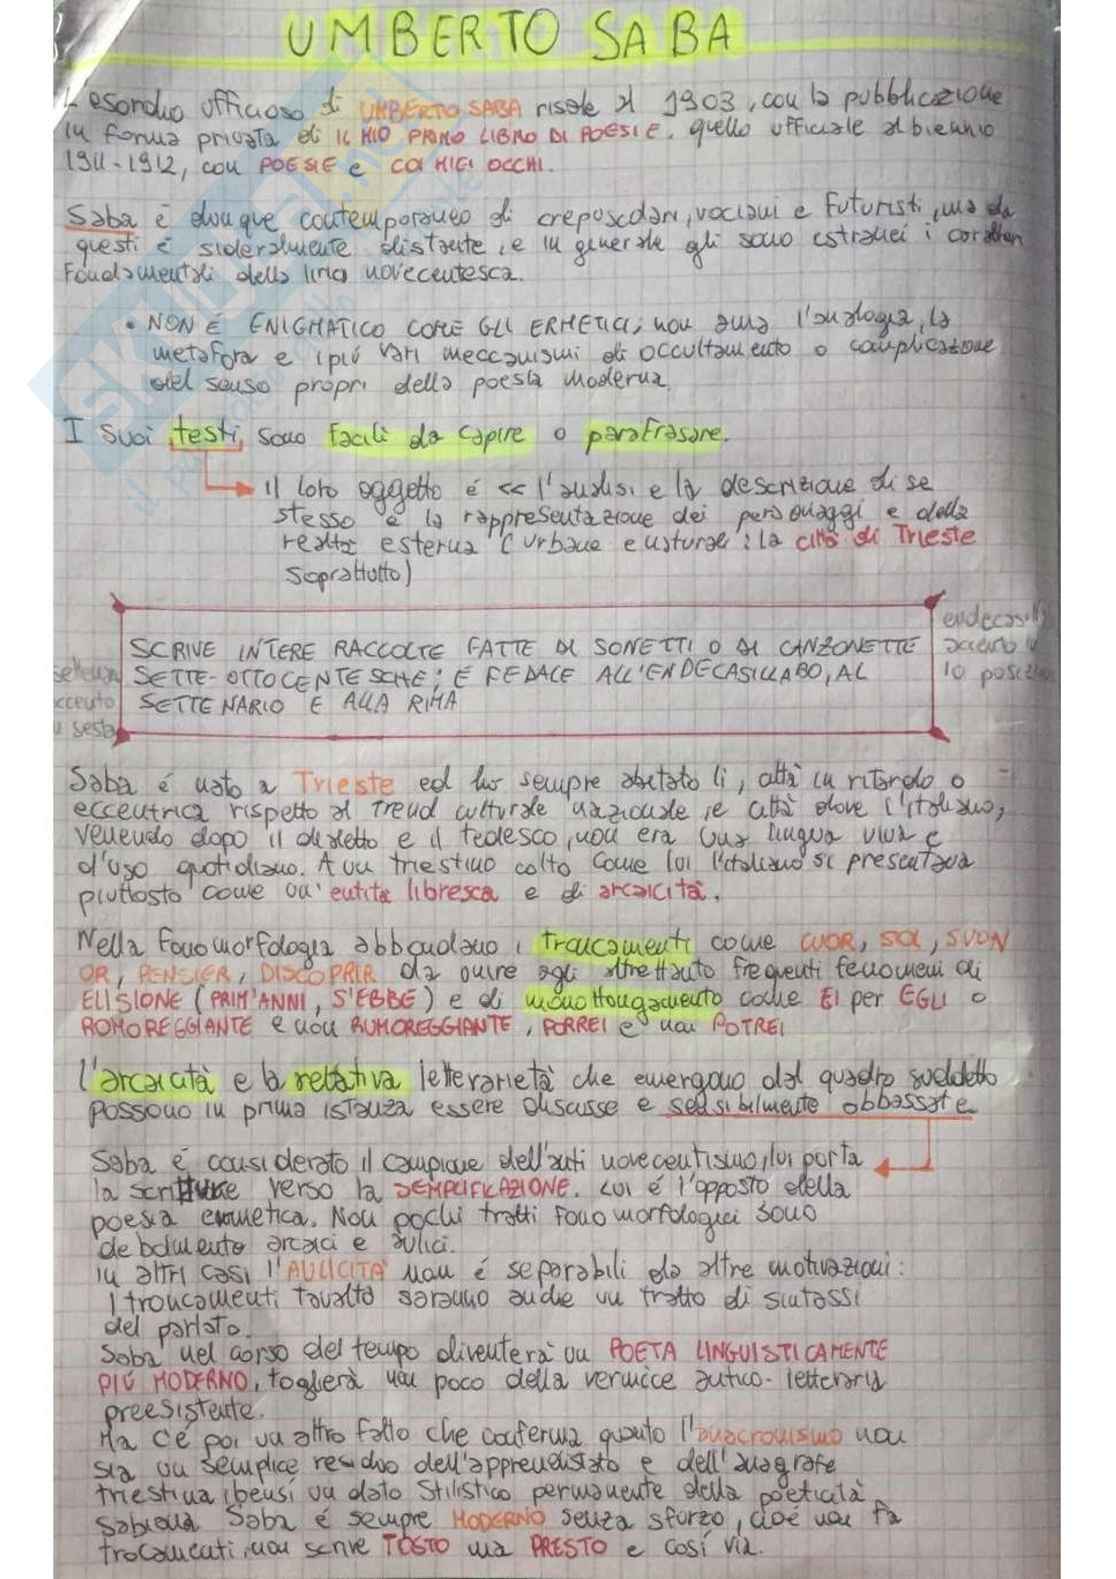 UMBERTO SABA
L'esordio ufficioso di UMBERTO SABA risale al 1903, con la pubblicazione
in forma privata di IL MIO PRIMO LIBRO DI POESIE. quello ufficiale al biennio
1911-1912, con POESIE e COI MIEI OCCHI.
Saba è dunque contemporaneo di crepuscolari, vociani e Futuristi, ma da
questi è sideralmente distante, e in generale gli sono estranei i caratteri
Fondamentali della lirica novecentesca.
• NON È ENIGMATICO COME GLI ERMETICI; non ama l'analogia, la
metafora e i più vari meccanismi di occultamento o complicazione
del senso propri della poesia moderna.
I suoi testi, sono facili da capire o parafrasare.
il loro oggetto é << l'analisi e la descrizione di se
stesso e la rappresentazione dei personaggi e della
realtà esterna (urbana e naturale: la città di Trieste
soprattutto)
endecasill
SCRIVE INTERE RACCOLTE FATTE DI SONETTI O DI CANZONETTE accento in
settenari SETTE-OTTOCENTESCHE; È FEDALE ALL'ENDECASILLABO, AL 10 posizione
accento SETTENARIO E ALLA RIMA
in sesta
Saba é nato a Trieste ed ha sempre abitato lì, città in ritardo o
eccentrica rispetto al trend culturale nazionale, e città dove l'italiano,
venendo dopo il dialetto e il tedesco, non era una lingua viva e
d'uso quotidiano. A un triestino colto come lui l'italiano si presentava
piuttosto come un'entità libresca e di arcaicità.
Nella fonomorfologia abbondano i troncamenti come CUOR, SOL, SUON
OR, PENSIER, DISCOPRIR da unire agli altrettanto frequenti fenomeni di
ELISIONE (PRIM'ANNI, S'EBBE) e di monottongamento come EI per EGLI o
ROMOREGGIANTE e non RUMOREGGIANTE, PORREI e non POTREI
L'arcaicità e la relativa letterarietà che emergono dal quadro suddetto
possono in prima istanza essere discusse e sensibilmente abbassate
Saba é considerato il campione dell'anti novecentismo, lui porta
la scritture verso la SEMPLIFICAZIONE. Lui é l'opposto della
poesia ermetica. Non pochi tratti fonomorfologici sono
debolmente arcaici e aulici.
in altri casi l'AULICITÀ non é separabili da altre motivazioni:
I troncamenti tavolta saranno anche un tratto di sintassi
del parlato.
Saba nel corso del tempo diventerà un POETA LINGUISTICAMENTE
PIÚ MODERNO, toglierà non poco della vernice antico-letteraria
preesistente.
Ma c'é poi un altro fatto che conferma quanto l'anacronismo non
sia un semplice residuo dell'apprendistato e dell'anagrafe
triestina, bensì un dato stilistico permanente della poeticità
sabiana Saba é sempre MODERNO senza sforzo, cioè non fa
trocamenti, non scrive TOSTO ma PRESTO e così via.